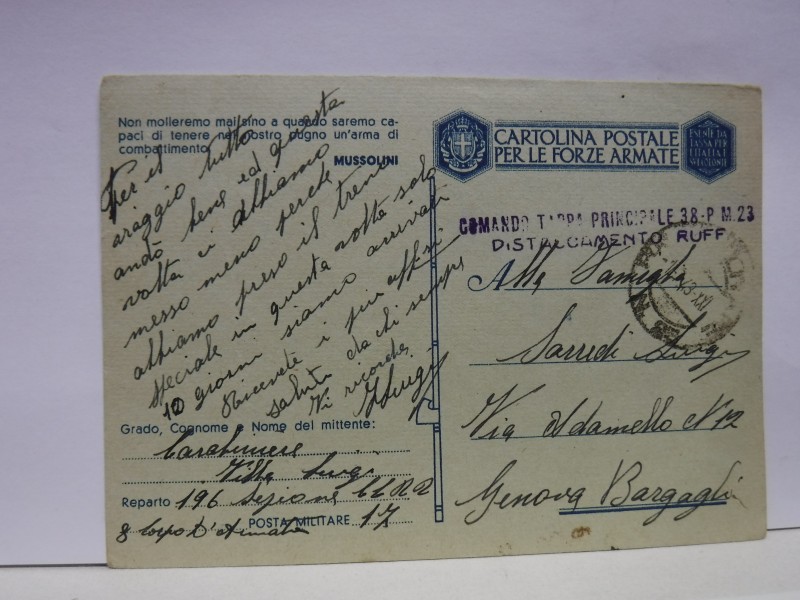 Non molleremo mai sino a quando saremo ca-
paci di tenere nel nostro pugno un'arma di
combattimento.
MUSSOLINI
Per il
araggio tutto
andò bene ed questa
volta ci abbiamo
messo meno perche
abbiamo preso il treno
speciale in questa volta solo
10 giorni siamo arrivati
Ricevete i piu affezi
saluti da chi sempre
Vi ricorda
Luigi
Grado, Cognome e Nome del mittente:
Carabiniere
Villa Luigi
Reparto 196 Sezione CC RR
8 Corpo D'Armata POSTA MILITARE 17
CARTOLINA POSTALE
PER LE FORZE ARMATE
ESENTE DA
TASSA PER
L'ITALIA E
COMANDO TAPPA PRINCIPALE 38-P.M.23
DISTACCAMENTO RUFF
Alla Famiglia
Sarredi Luigi
Via Adamello N 12
Genova Bargagli